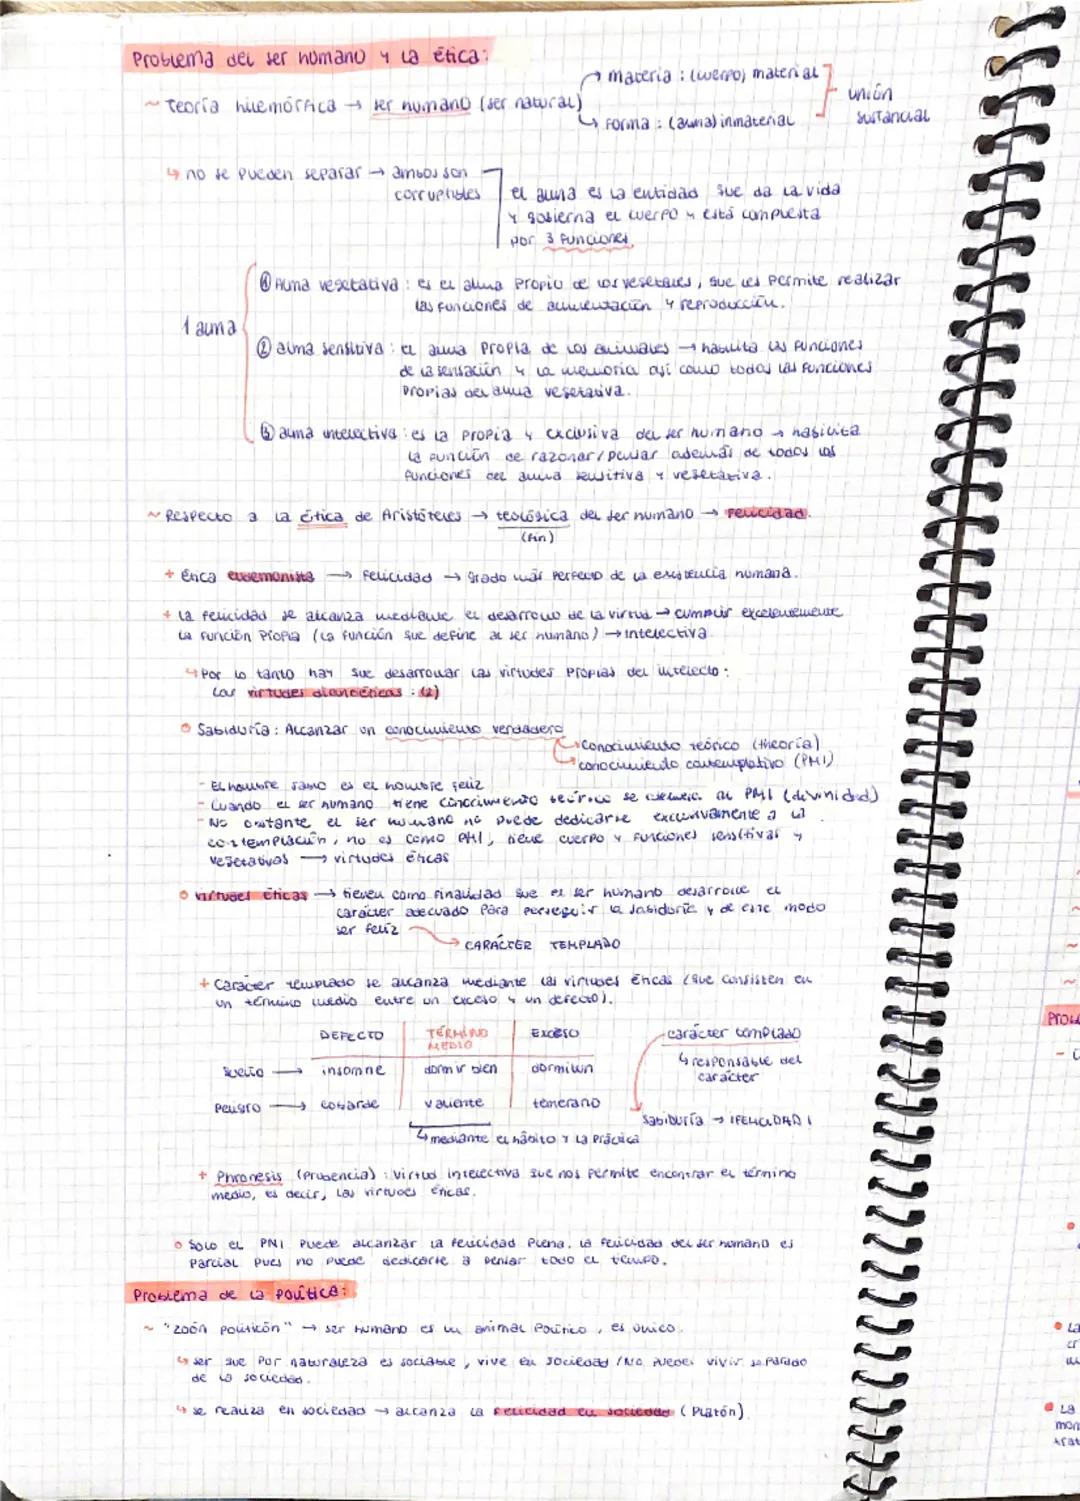 Problema del ser humano y la ética:
~ Teoría hilemórfica → ser humano (ser natural)
→ materia : (cuerpo) material
↳ forma : (alma) inmaterial
unión
sustancial
↳ no se pueden separar → ambos son
corruptibles
el alma es la entidad que da la vida
y gobierna el cuerpo y está compuesta
por 3 funciones
1 alma
① Alma vegetativa : es el alma propio de los vegetales, que les permite realizar
las funciones de alimentación y reproducción.
② alma sensitiva : el alma propia de los animales → habilita las funciones
de la sensación y la memoria así como todas las funciones
propias del alma vegetativa.
③ alma intelectiva : es la propia y exclusiva del ser humano → habilita
la función de razonar/pensar además de todos las
funciones del alma sensitiva y vegetativa.
~ Respecto a la ética de Aristóteles → teológica del ser humano → felicidad.
(fin)
+ Ética eudemonista → felicidad → grado más perfecto de la existencia humana.
+ La felicidad se alcanza mediante el desarrollo de la virtud → cumplir excelentemente
la función propia (la función que define al ser humano) → intelectiva
↳ Por lo tanto hay que desarrollar las virtudes propias del intelecto :
las virtudes dianoéticas : (2)
○ Sabiduría : Alcanzar un conocimiento verdadero
→ conocimiento teórico (theoría)
→ conocimiento contemplativo (PMI)
- El hombre sabio es el hombre feliz
- Cuando el ser humano tiene conocimiento teórico se asemeja al PMI (divinidad)
- No obstante el ser humano no puede dedicarse exclusivamente a la
contemplación, no es como PMI, tiene cuerpo y funciones sensitivas y
vegetativas → virtudes éticas
○ virtudes éticas → tienen como finalidad que el ser humano desarrolle el
carácter adecuado para perseguir la sabiduría y de este modo
ser feliz
→ CARÁCTER TEMPLADO
+ Carácter templado se alcanza mediante las virtudes éticas (que consisten en
un término medio entre un exceso y un defecto).
DEFECTO TÉRMINO MEDIO EXCESO
Sueño → insomne dormir bien dormilón
Peligro → cobarde valiente temerario
↳ mediante el hábito y la práctica
carácter templado
↳ responsable del
carácter
Sabiduría → ¡FELICIDAD!
+ Phronesis (Prudencia) : virtud intelectiva que nos permite encontrar el término
medio, es decir, las virtudes éticas.
○ Solo el PMI puede alcanzar la felicidad plena. La felicidad del ser humano es
parcial pues no puede dedicarse a pensar todo el tiempo.
Problema de la política:
~ "zoón politicón" → ser humano es un animal político, es único.
↳ ser que por naturaleza es sociable, vive en sociedad / No puedes vivir separado
de la sociedad.
↳ se realiza en sociedad → alcanza la felicidad en sociedad (Platón).
Prob
La
La
mon
trat